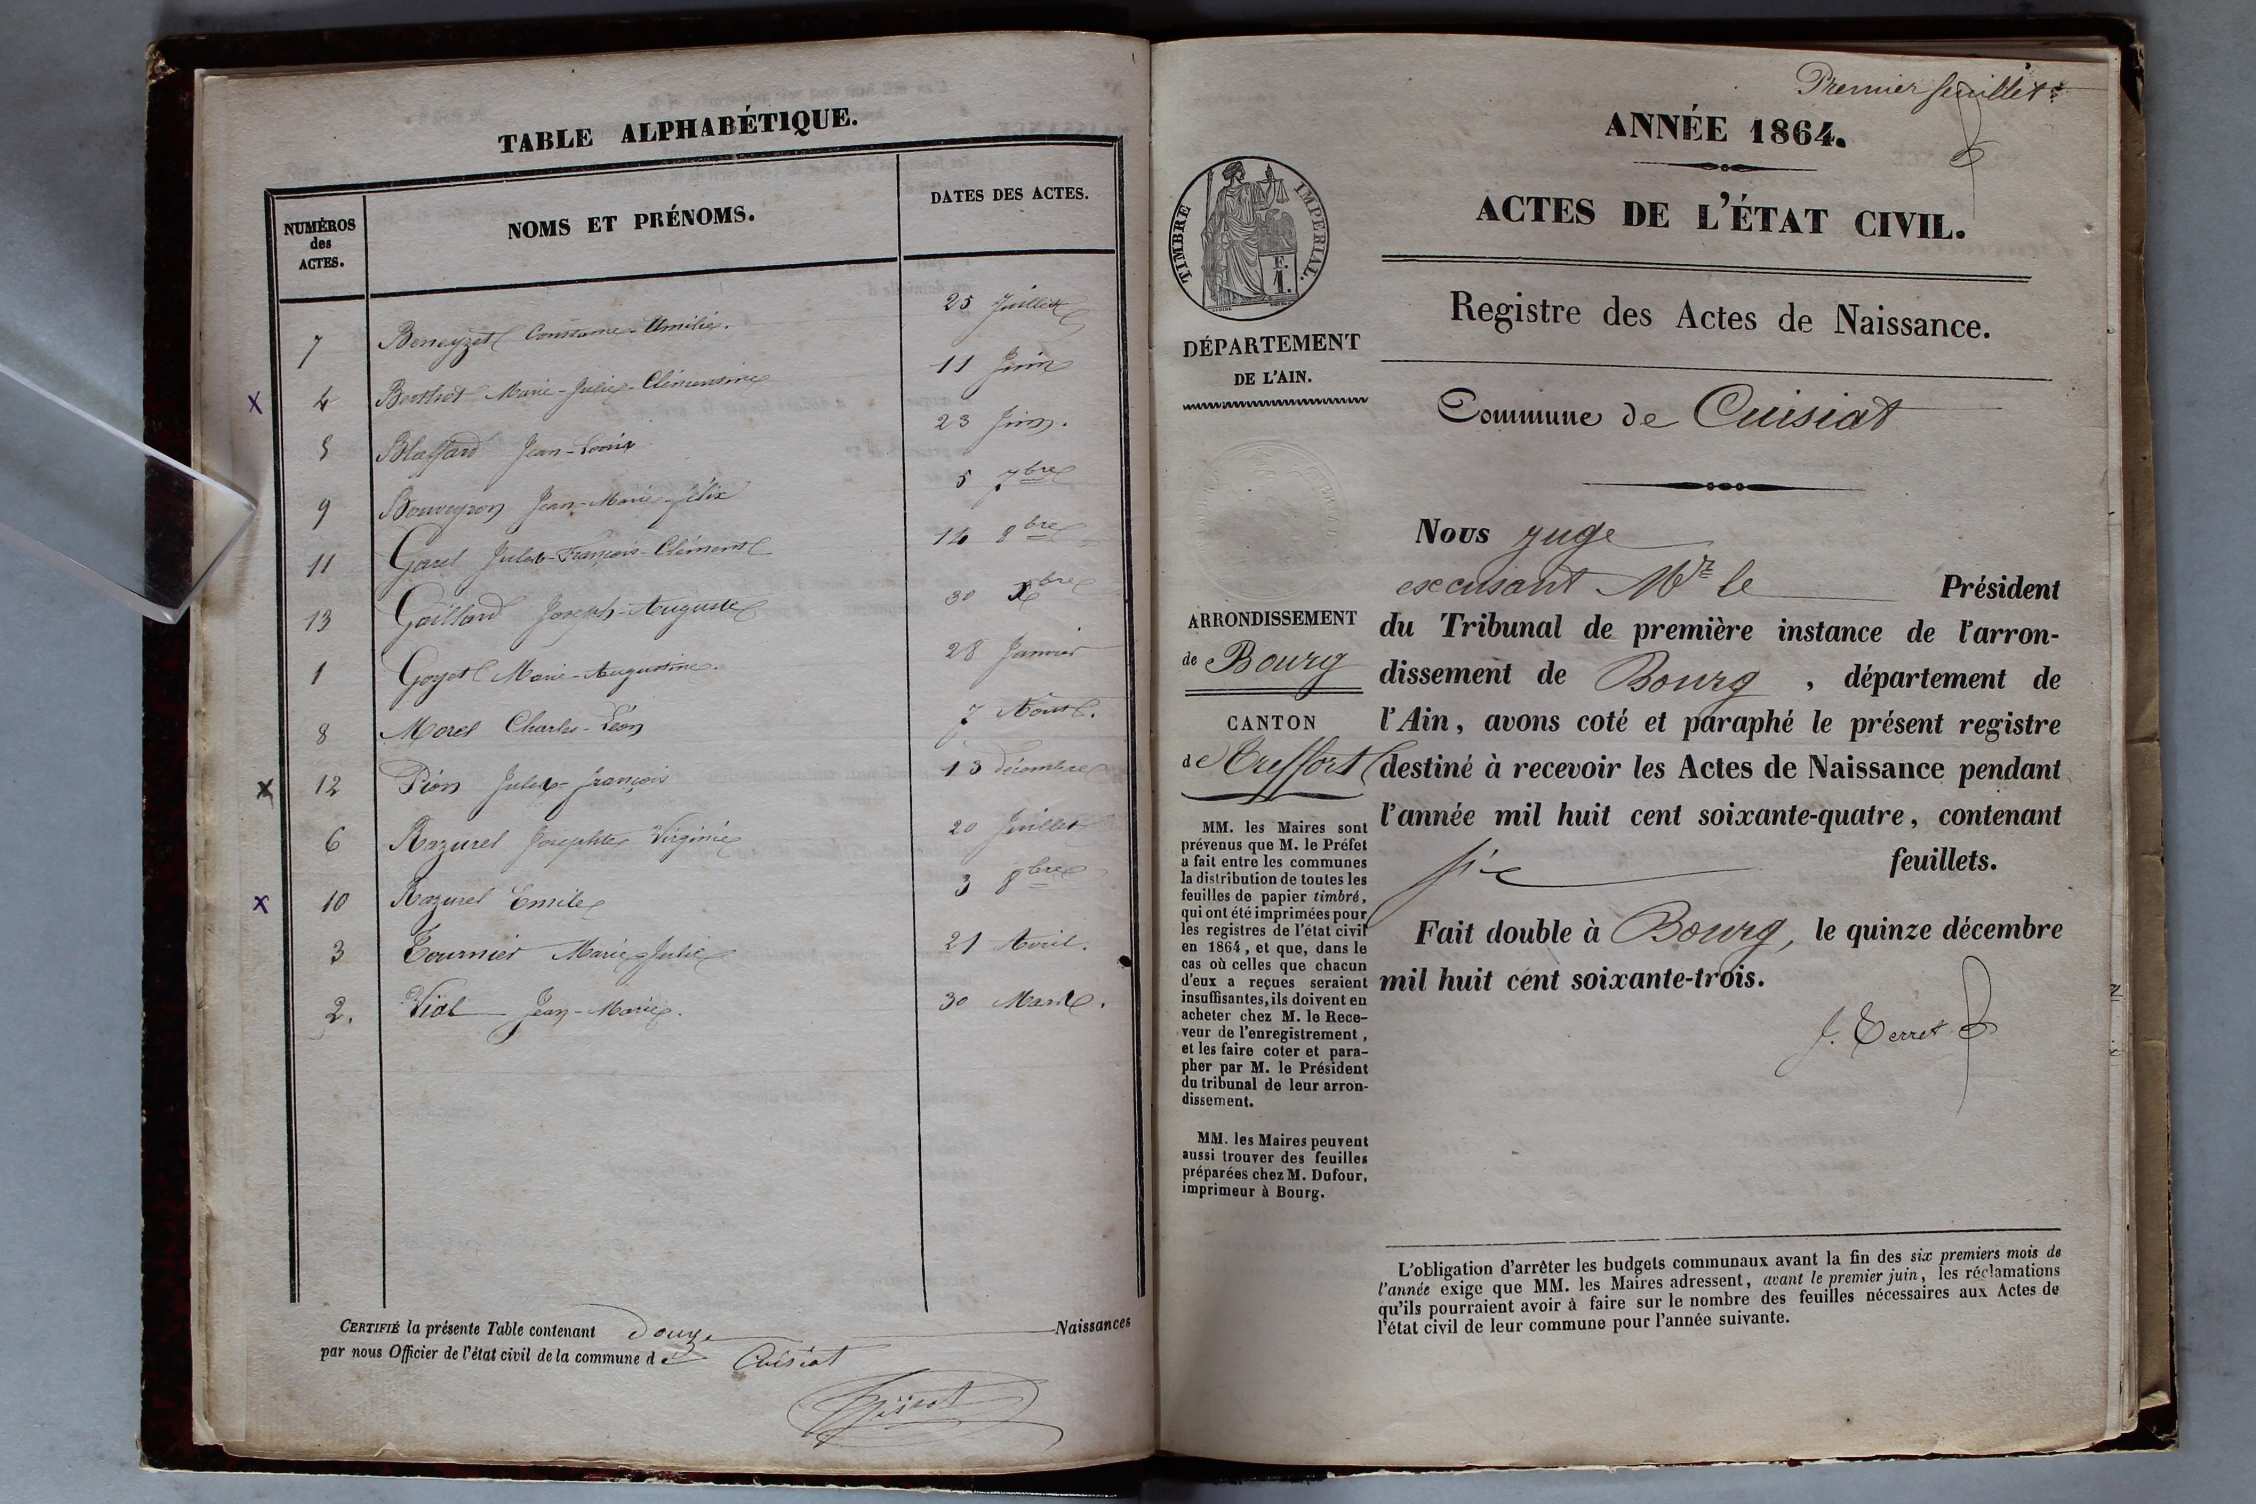 TABLE ALPHABÉTIQUE.
NUMÉROS
des
ACTES.
NOMS ET PRÉNOMS.
DATES DES ACTES.
7 Beneyzet Constance-Emilie. 25 Juillet
4 Berthet Marie-Julie-Clémentine 11 Juin
5 Blaffard Jean-Louis 23 Juin.
9 Bouveyron Jean-Marie-Félix 5 7bre
11 Garel Jules-François-Clément 14 8bre
13 Gaillard Joseph-Auguste 30 Xbre
1 Goyet Marie-Augustine. 28 Janvier
8 Morel Charles-Léon 7 Août.
12 Pión Jules-François 13 Décembre
6 Razurel Josephte Virginie 20 Juillet
10 Razurel Emile 3 8bre
3 Tournier Marie-Julie 21 Avril.
2. Vial Jean-Marie. 30 Mars.
CERTIFIÉ la présente Table contenant Douze Naissances
par nous Officier de l'état civil de la commune de Cuisiat
Premier feuillet
ANNÉE 1864.
ACTES DE L'ÉTAT CIVIL.
TIMBRE IMPÉRIAL.
F.
1.
Registre des Actes de Naissance.
DÉPARTEMENT
DE L'AIN.
Commune de Cuisiat
Nous juge
excusant Mr le Président
du Tribunal de première instance de l'arron-
dissement de Bourg, département de
l'Ain, avons coté et paraphé le présent registre
destiné à recevoir les Actes de Naissance pendant
l'année mil huit cent soixante-quatre, contenant
six feuillets.
Fait double à Bourg, le quinze décembre
mil huit cent soixante-trois.
J. Terret
ARRONDISSEMENT
de Bourg
CANTON
de Treffort
MM. les Maires sont
prévenus que M. le Préfet
a fait entre les communes
la distribution de toutes les
feuilles de papier timbré,
qui ont été imprimées pour
les registres de l'état civil
en 1864, et que, dans le
cas où celles que chacun
d'eux a reçues seraient
insuffisantes, ils doivent en
acheter chez M. le Rece-
veur de l'enregistrement,
et les faire coter et para-
pher par M. le Président
du tribunal de leur arron-
dissement.
MM. les Maires peuvent
aussi trouver des feuilles
préparées chez M. Dufour,
imprimeur à Bourg.
L'obligation d'arrêter les budgets communaux avant la fin des six premiers mois de
l'année exige que MM. les Maires adressent, avant le premier juin, les réclamations
qu'ils pourraient avoir à faire sur le nombre des feuilles nécessaires aux Actes de
l'état civil de leur commune pour l'année suivante.